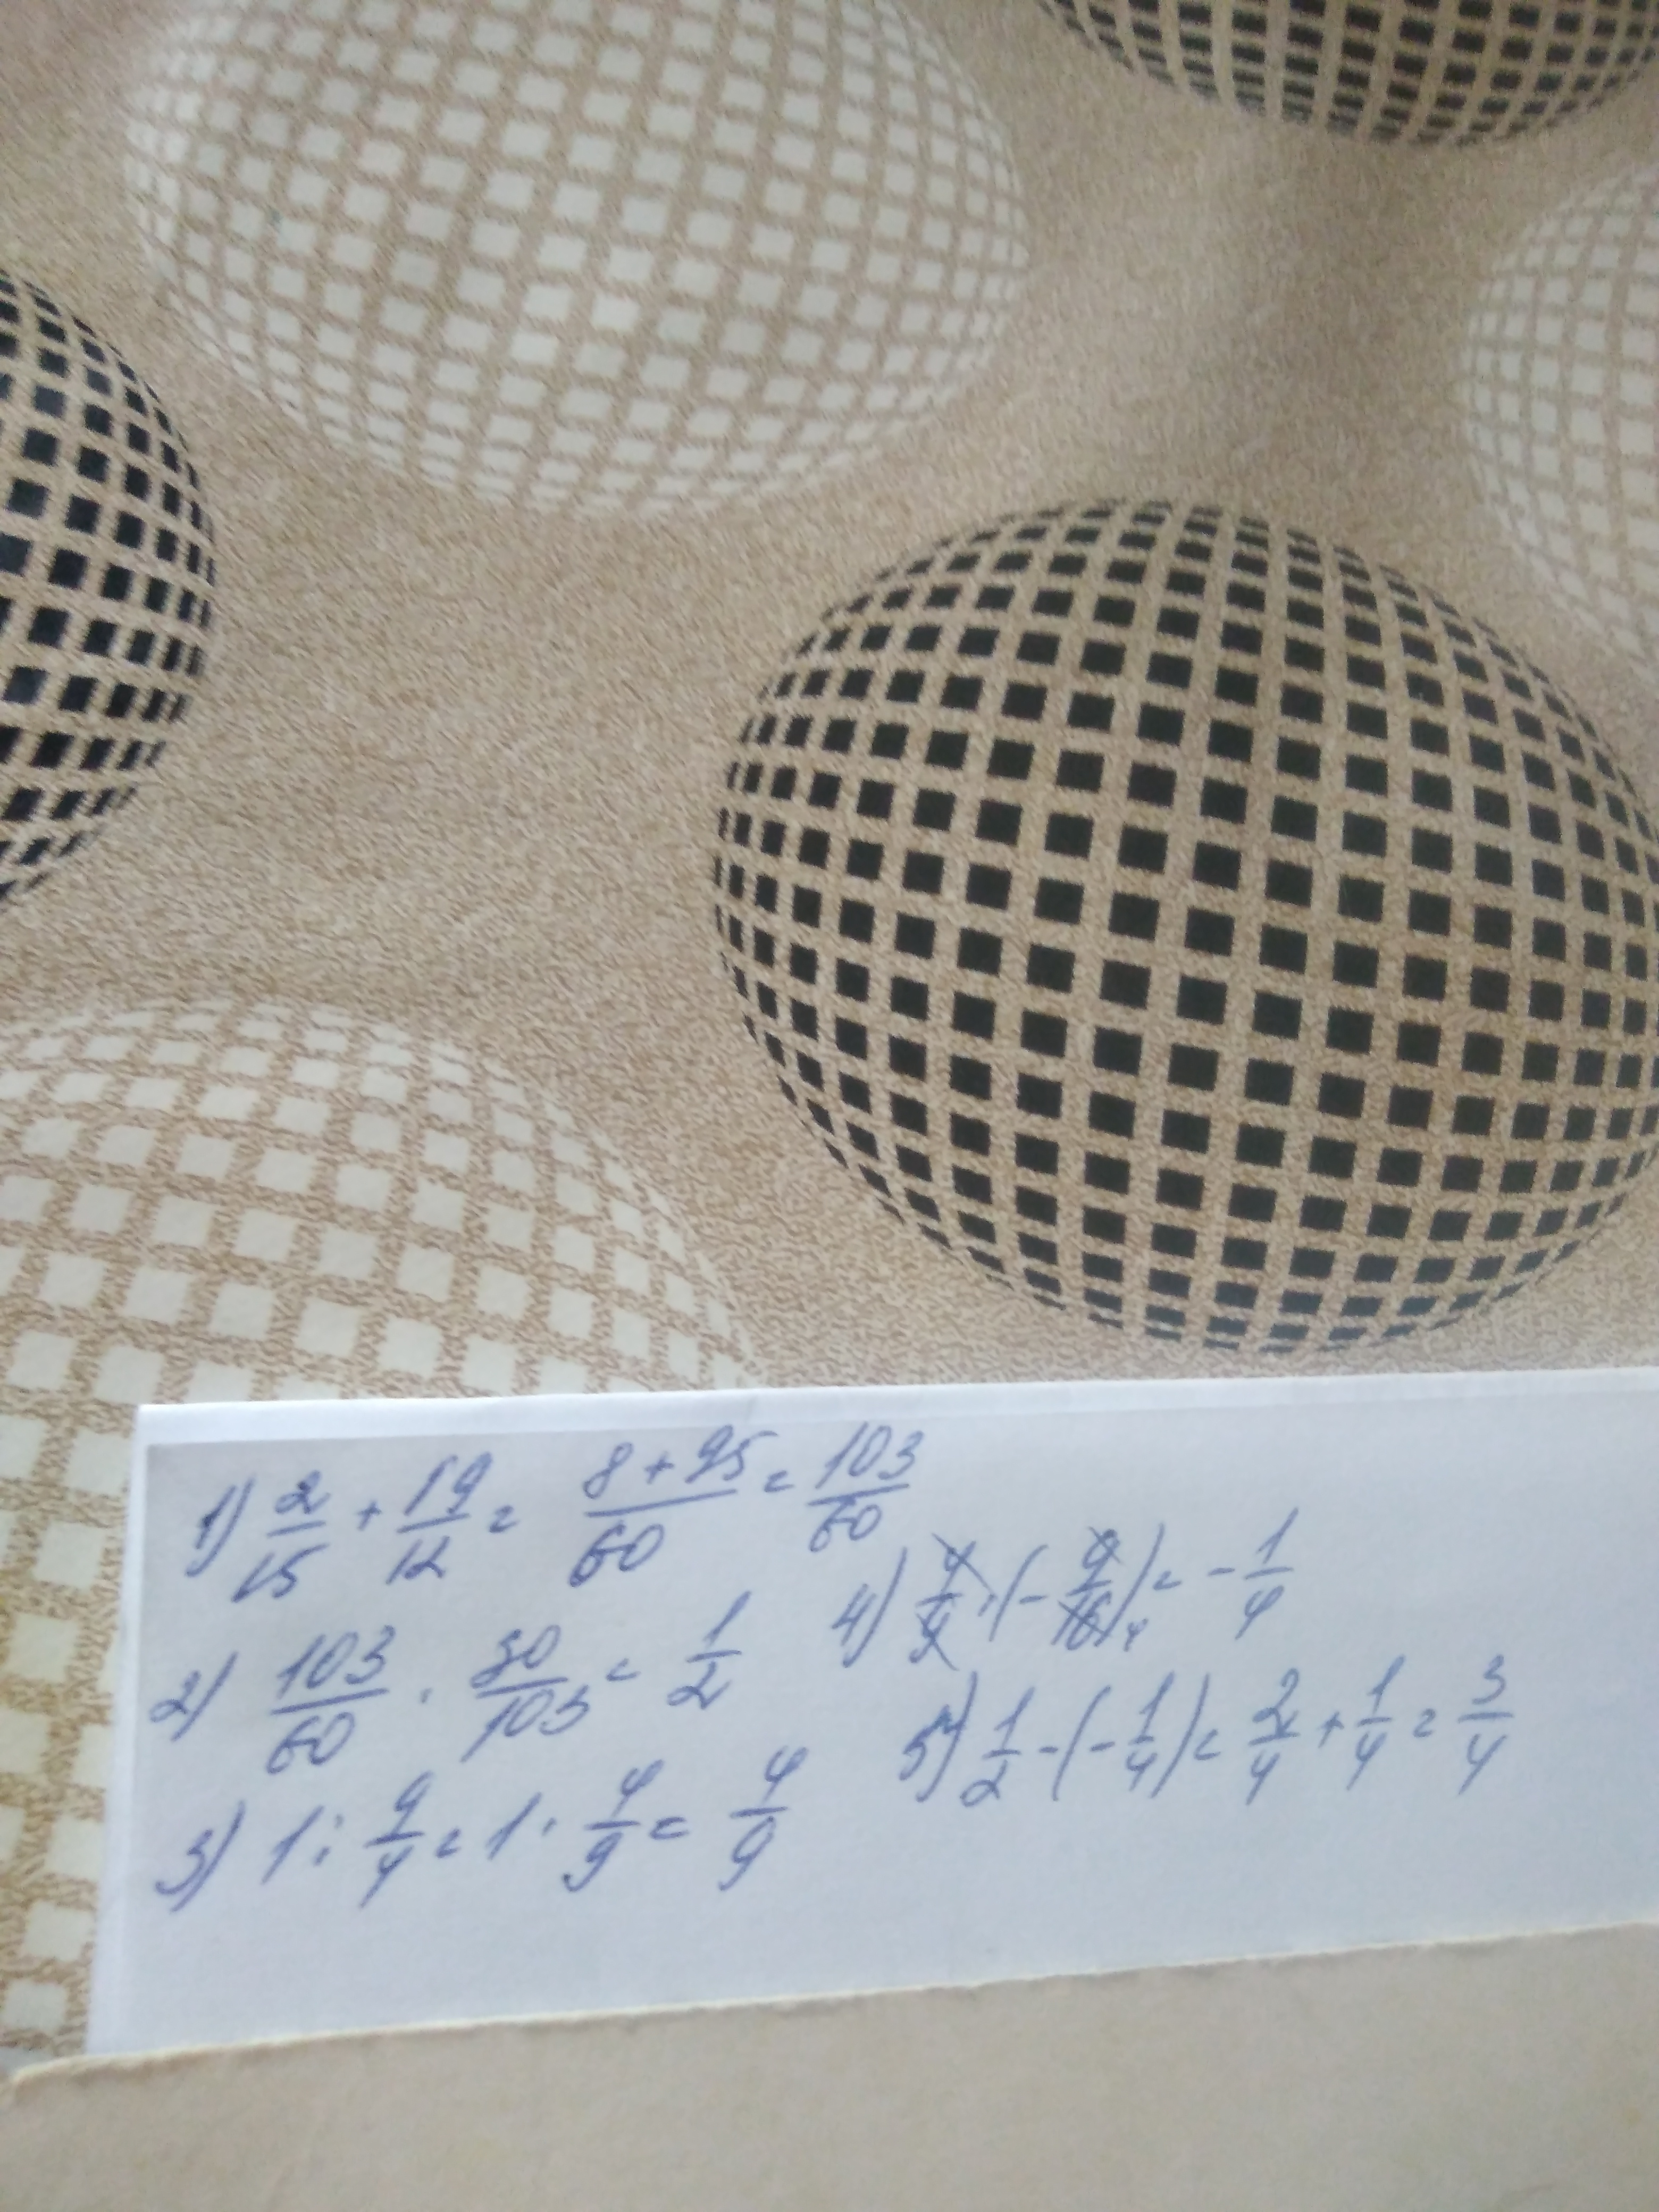 1) 2/15 + 19/12 = (8+95)/60 = 103/60
2) 103/60 · 30/103 = 1/2
3) 1 : 9/4 = 1 · 4/9 = 4/9
4) 4/9 · (- 9/16) 4 = - 1/4
5) 1/2 - (- 1/4) = 2/4 + 1/4 = 3/4